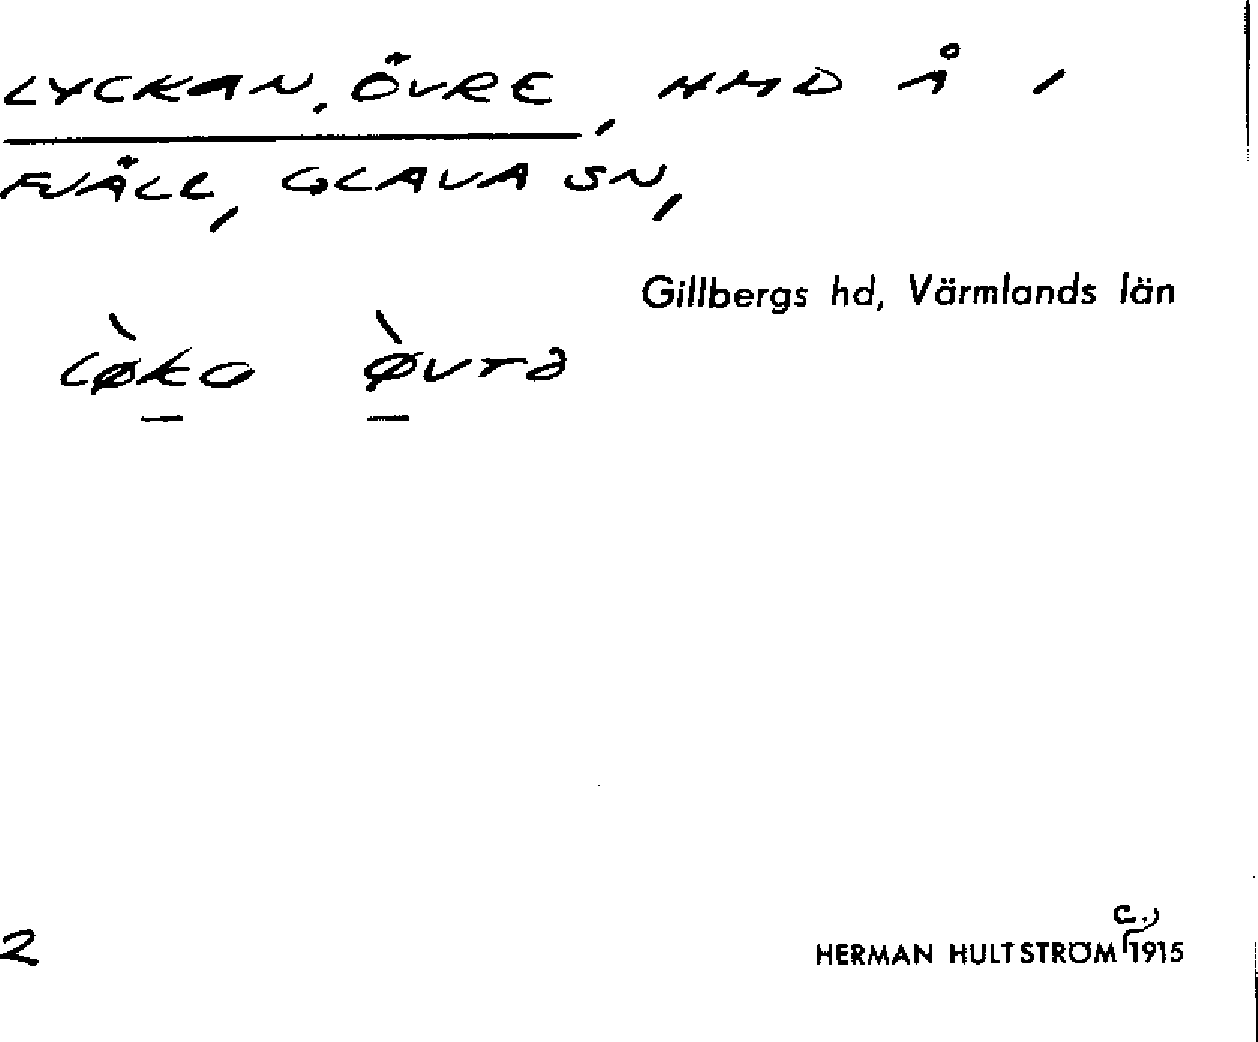 LYCKAN, ÖVRE, HMD Å I
FJÄLL, GLAVA SN,
Gillbergs hd, Värmlands län
lø̀ko ø̀vrə
2
HERMAN HULTSTRÖM c.) 1915